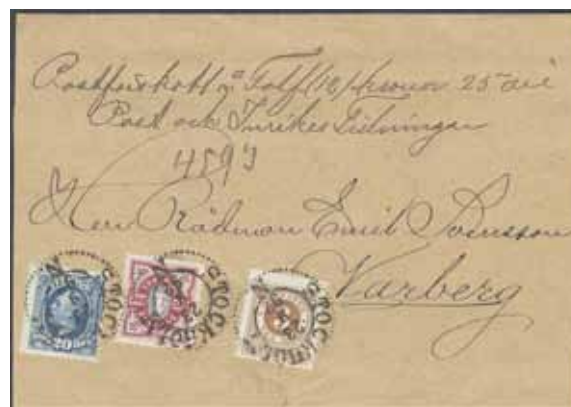 Postförskott å Tolf (12) kronor 25 öre
Post och Inrikes Tidningar
Herr Rådman Emil Svensson
Varberg
20
STOCKHOLM
STOCKHOLM
STOCKHOLM